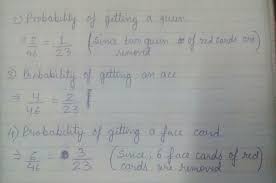 2) Probability of getting a queen
⇒ 2/46 = 1/23 (Since two queen of red cards are removed
3) Probability of getting an ace
⇒ 4/46 = 2/23
4) Probability of getting a face card
⇒ 6/46 = 3/23 (Since, 6 face cards of red cards are removed)